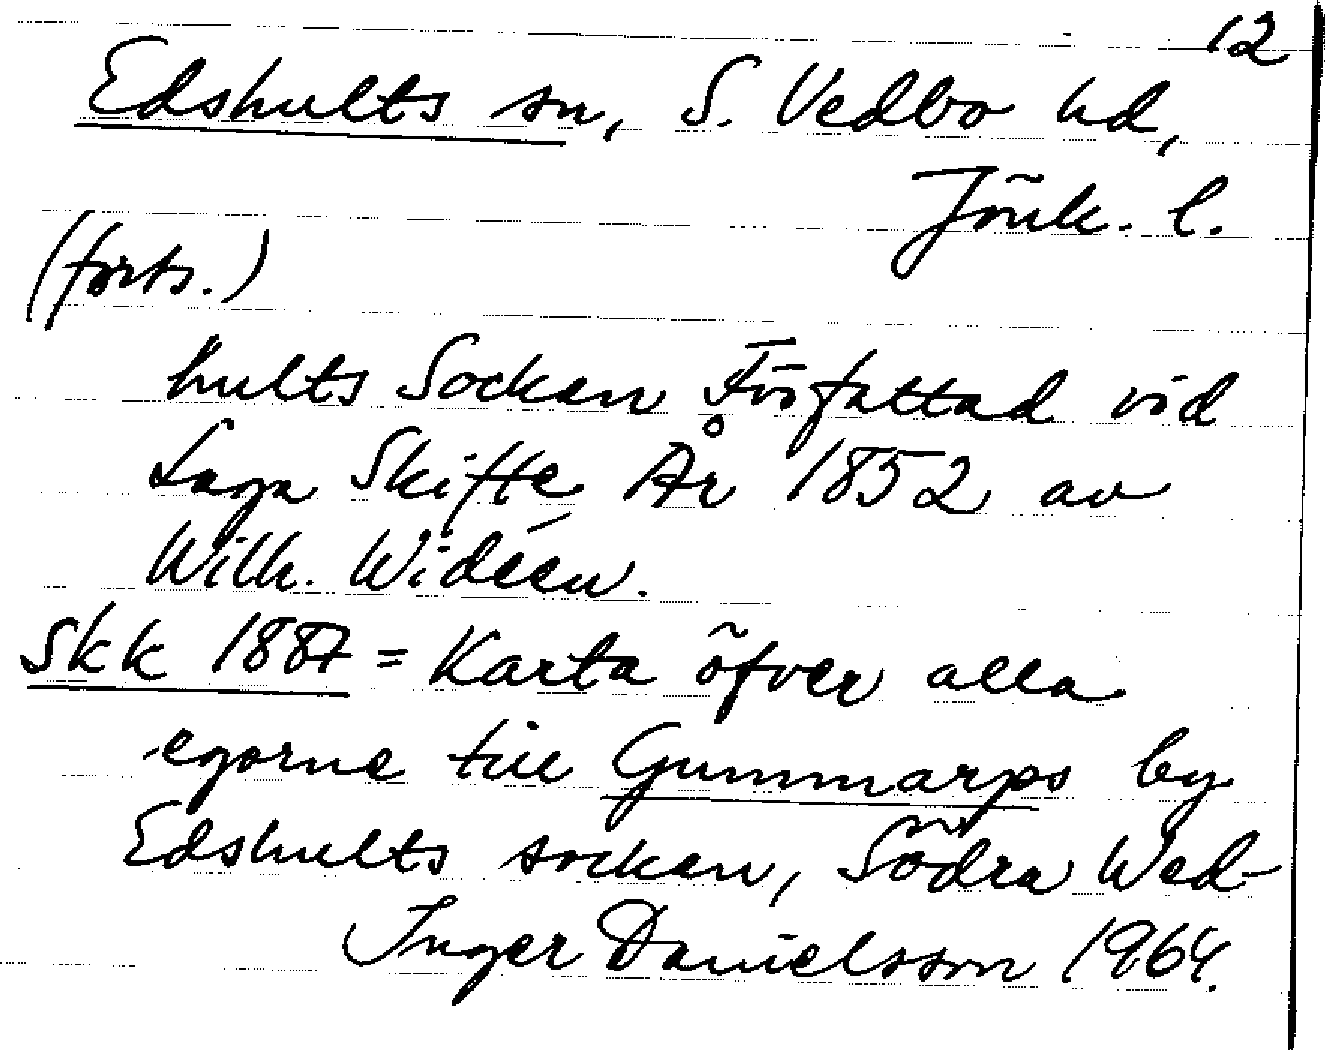 12
Edshults sn, S. Vedbo hd,
Jönk. l.
(forts.)
hults Socken Författad vid
Laga Skifte År 1852 av
Wilh. Widéen.
Skk 1887 = Karta öfver alla
egorne till Gummarps by
Edshults socken, Södra Wed-
Inger Danielsson 1964.